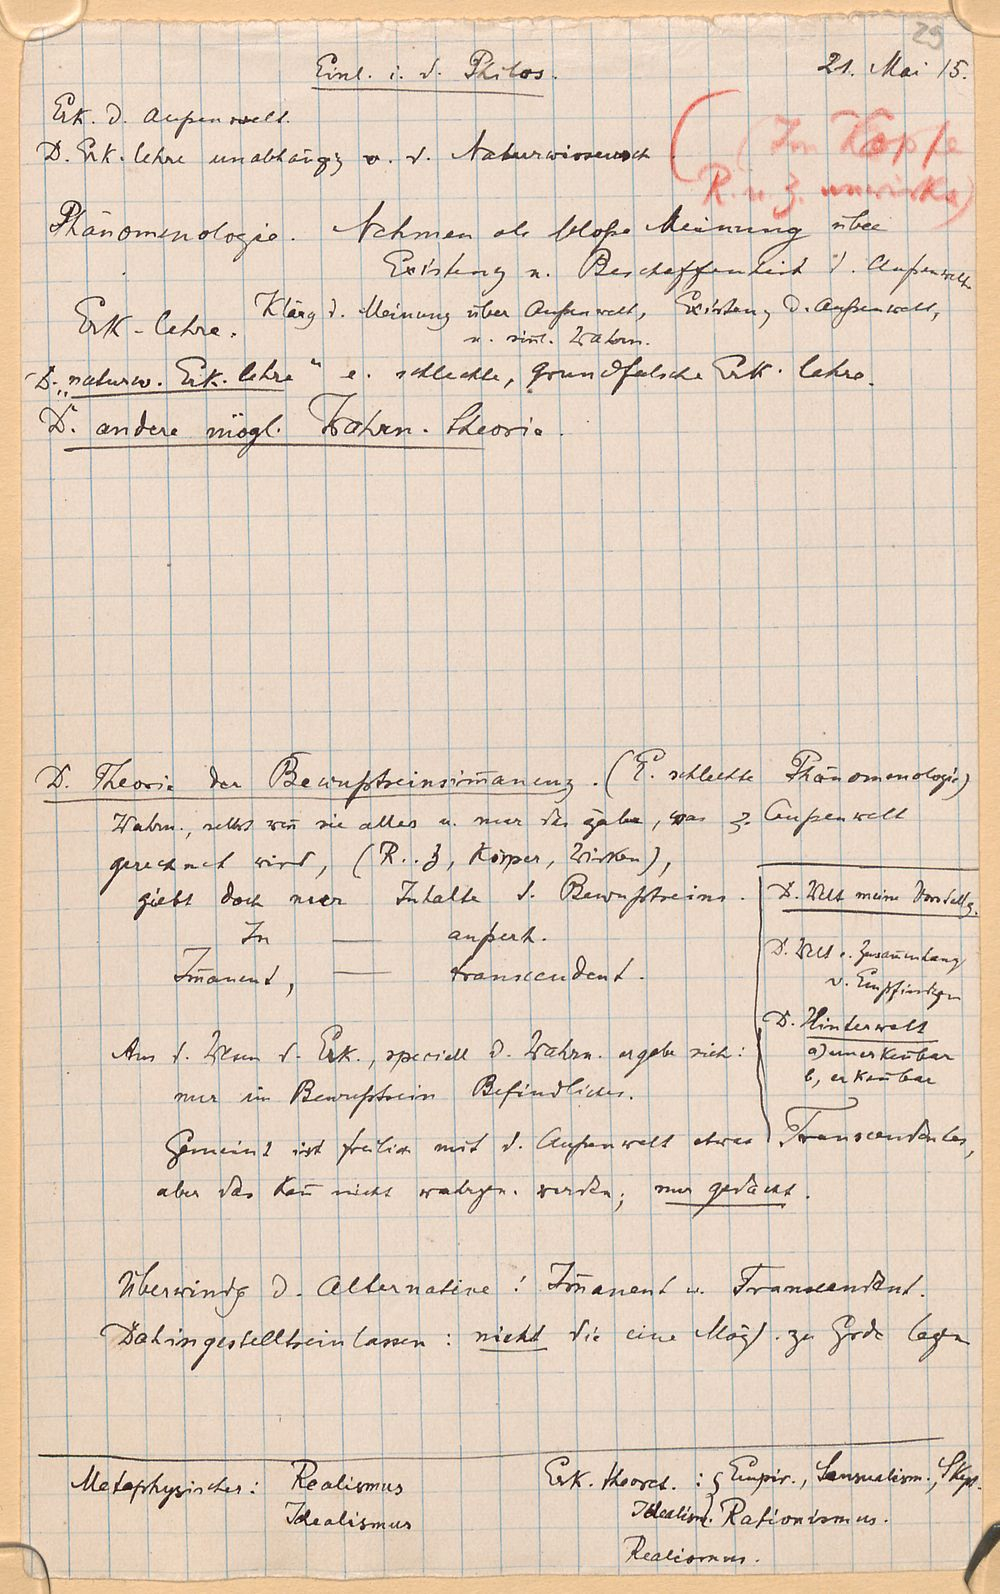 29
Einl. i. d. Philos.
21. Mai 15.
Erk. d. Außenwelt.
D. Erk. lehre unabhängig v. d. Naturwissensch
(Im Kopfe
R. u. Z. unwirkl)
Phänomenologie. Nehmen als bloße Meinung über
Existenz u. Beschaffenheit d. Außenwelt
Erk-lehre. Klärg d. Meinung über Außenwelt, Existenz d. Außenwelt,
u. sinl. Wahrn.
D. „naturw. Erk. lehre“ e. schlechte, grundfalsche Erk. lehre.
D. andere mögl. Wahrn. theorie.
D. Theorie der Bewußtseinsim̅anenz. (E. schlechte Phänomenologie)
Wahrn., selbst wen̅ sie alles u. nur das gäbe, was z. Außenwelt
gerechnet wird, (R. Z, Körper, Wirken),
giebt doch nur Inhalte d. Bewußtseins.
In — außerh.
Im̅anent, — transcendent.
D. Welt meine Vorstellg.
D. Welt e. Zusam̅enhang
v. Empfindgen
D. Hinterwelt
a) unerken̅bar
b, erken̅bar
Aus d. Wesen d. Erk., speciell d. Wahrn. ergebe sich:
nur im Bewußtsein Befindliches.
Gemeint ist freilich mit d. Außenwelt etwas Transcendentes,
aber das kan̅ nicht wahrgen. werden; nur gedacht.
Überwindg d. Alternative: Im̅anent u. Transcendent.
Dahingestelltseinlassen: nicht die eine Mögl. zu Grde legen
Metaphysischer: Realismus
Idealismus
Erk. theoret.: Empir., Sensualism., Skept.
Idealism. Rationismus.
Realismus.